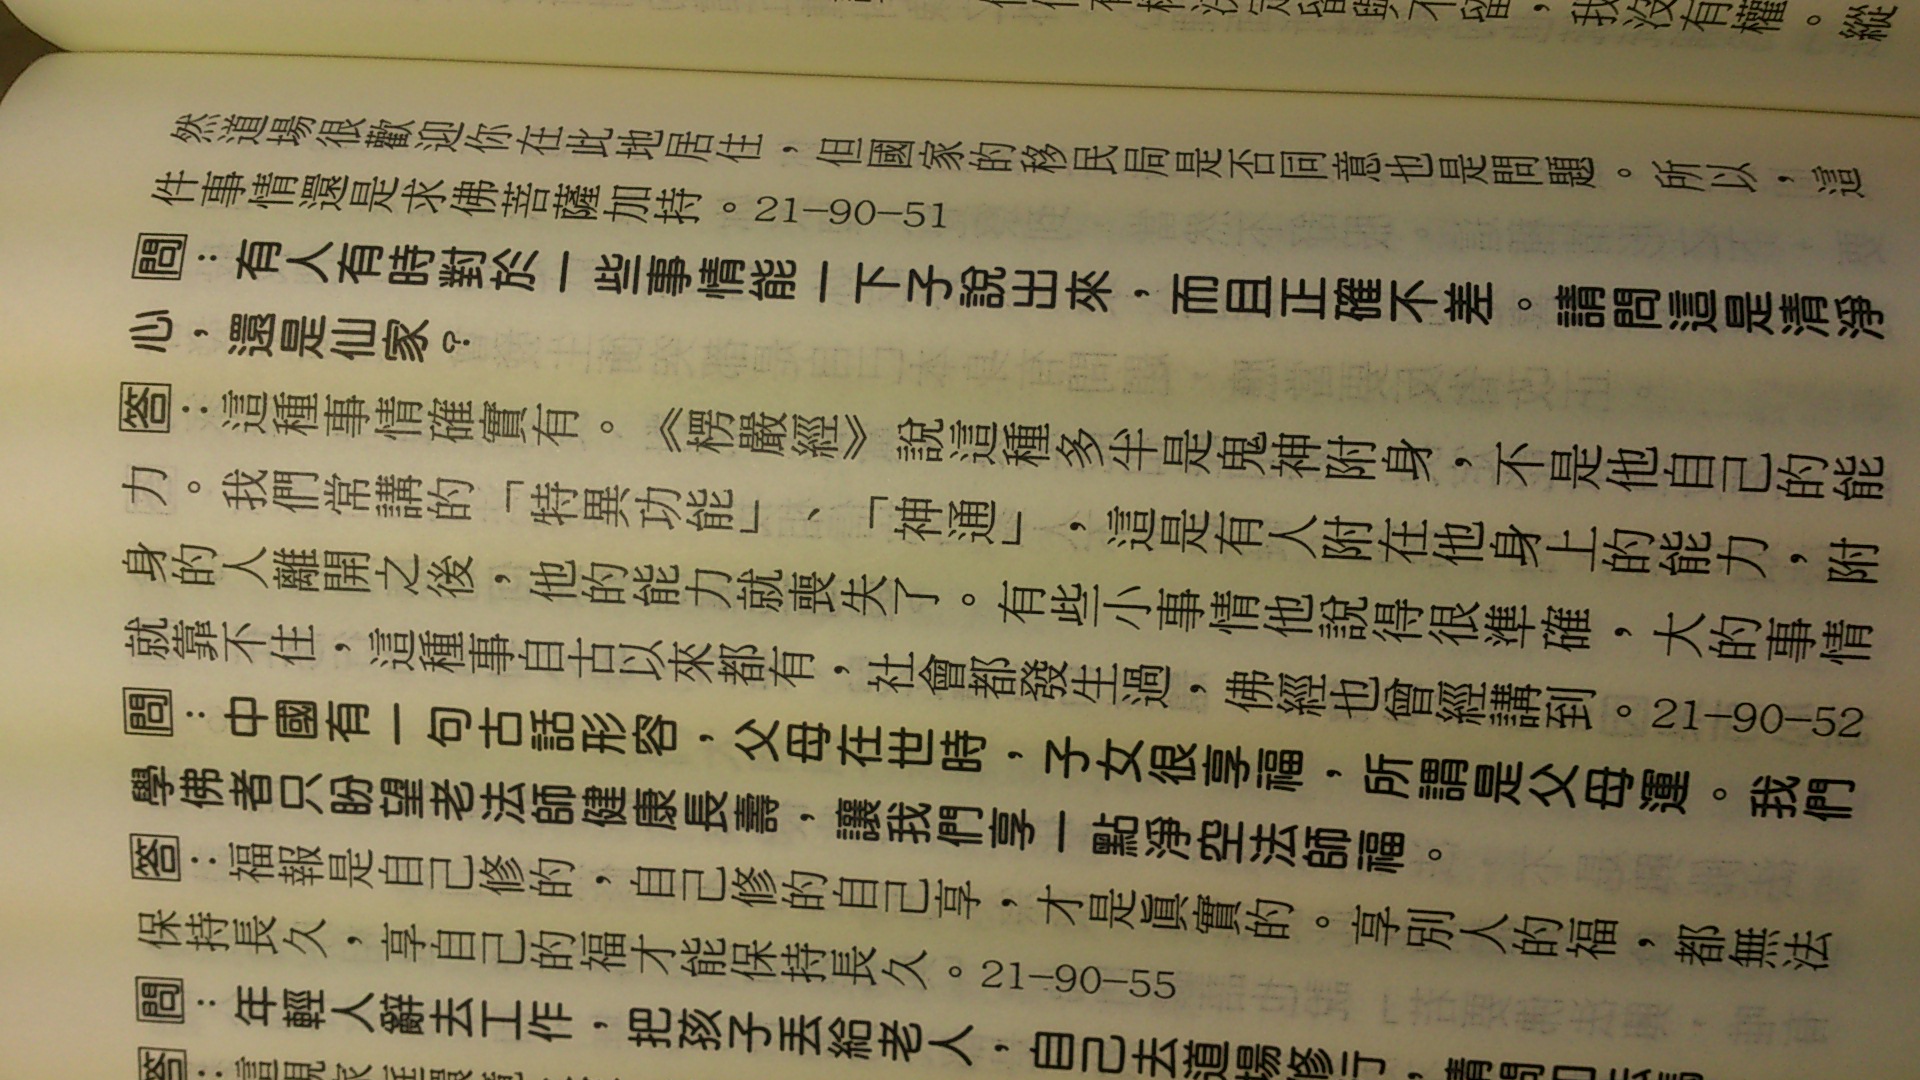 留與不留，我沒有權。縱
然道場很歡迎你在此地居住，但國家的移民局是否同意也是問題。所以，這
件事情還是求佛菩薩加持。21-90-51
問：有人有時對於一些事情能一下子說出來，而且正確不差。請問這是清淨
心，還是仙家？
答：這種事情確實有。《楞嚴經》說這種多半是鬼神附身，不是他自己的能
力。我們常講的「特異功能」、「神通」，這是有人附在他身上的能力，附
身的人離開之後，他的能力就喪失了。有些小事情他說得很準確，大的事情
就靠不住，這種事自古以來都有，社會都發生過，佛經也曾經講到。21-90-52
問：中國有一句古話形容，父母在世時，子女很享福，所謂是父母運。我們
學佛者只盼望老法師健康長壽，讓我們享一點淨空法師福。
答：福報是自己修的，自己修的自己享，才是真實的。享別人的福，都無法
保持長久，享自己的福才能保持長久。21-90-55
問：年輕人辭去工作，把孩子丟給老人，自己去道場修行，請問
答：這